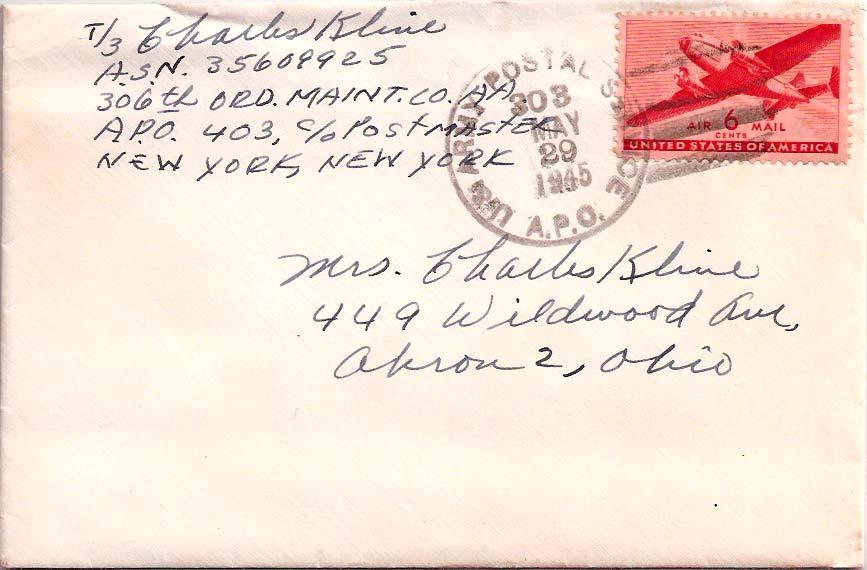 T/3 Charles Kline
A.S.N. 35609925
306th ORD. MAINT. CO. AA
A.P.O. 403, c/o POSTMASTER
NEW YORK, NEW YORK
U.S. ARMY POSTAL SERVICE
303
MAY
29
1945
A.P.O.
AIR 6 MAIL
CENTS
UNITED STATES OF AMERICA
Mrs. Charles Kline
449 Wildwood Ave,
Akron 2, Ohio